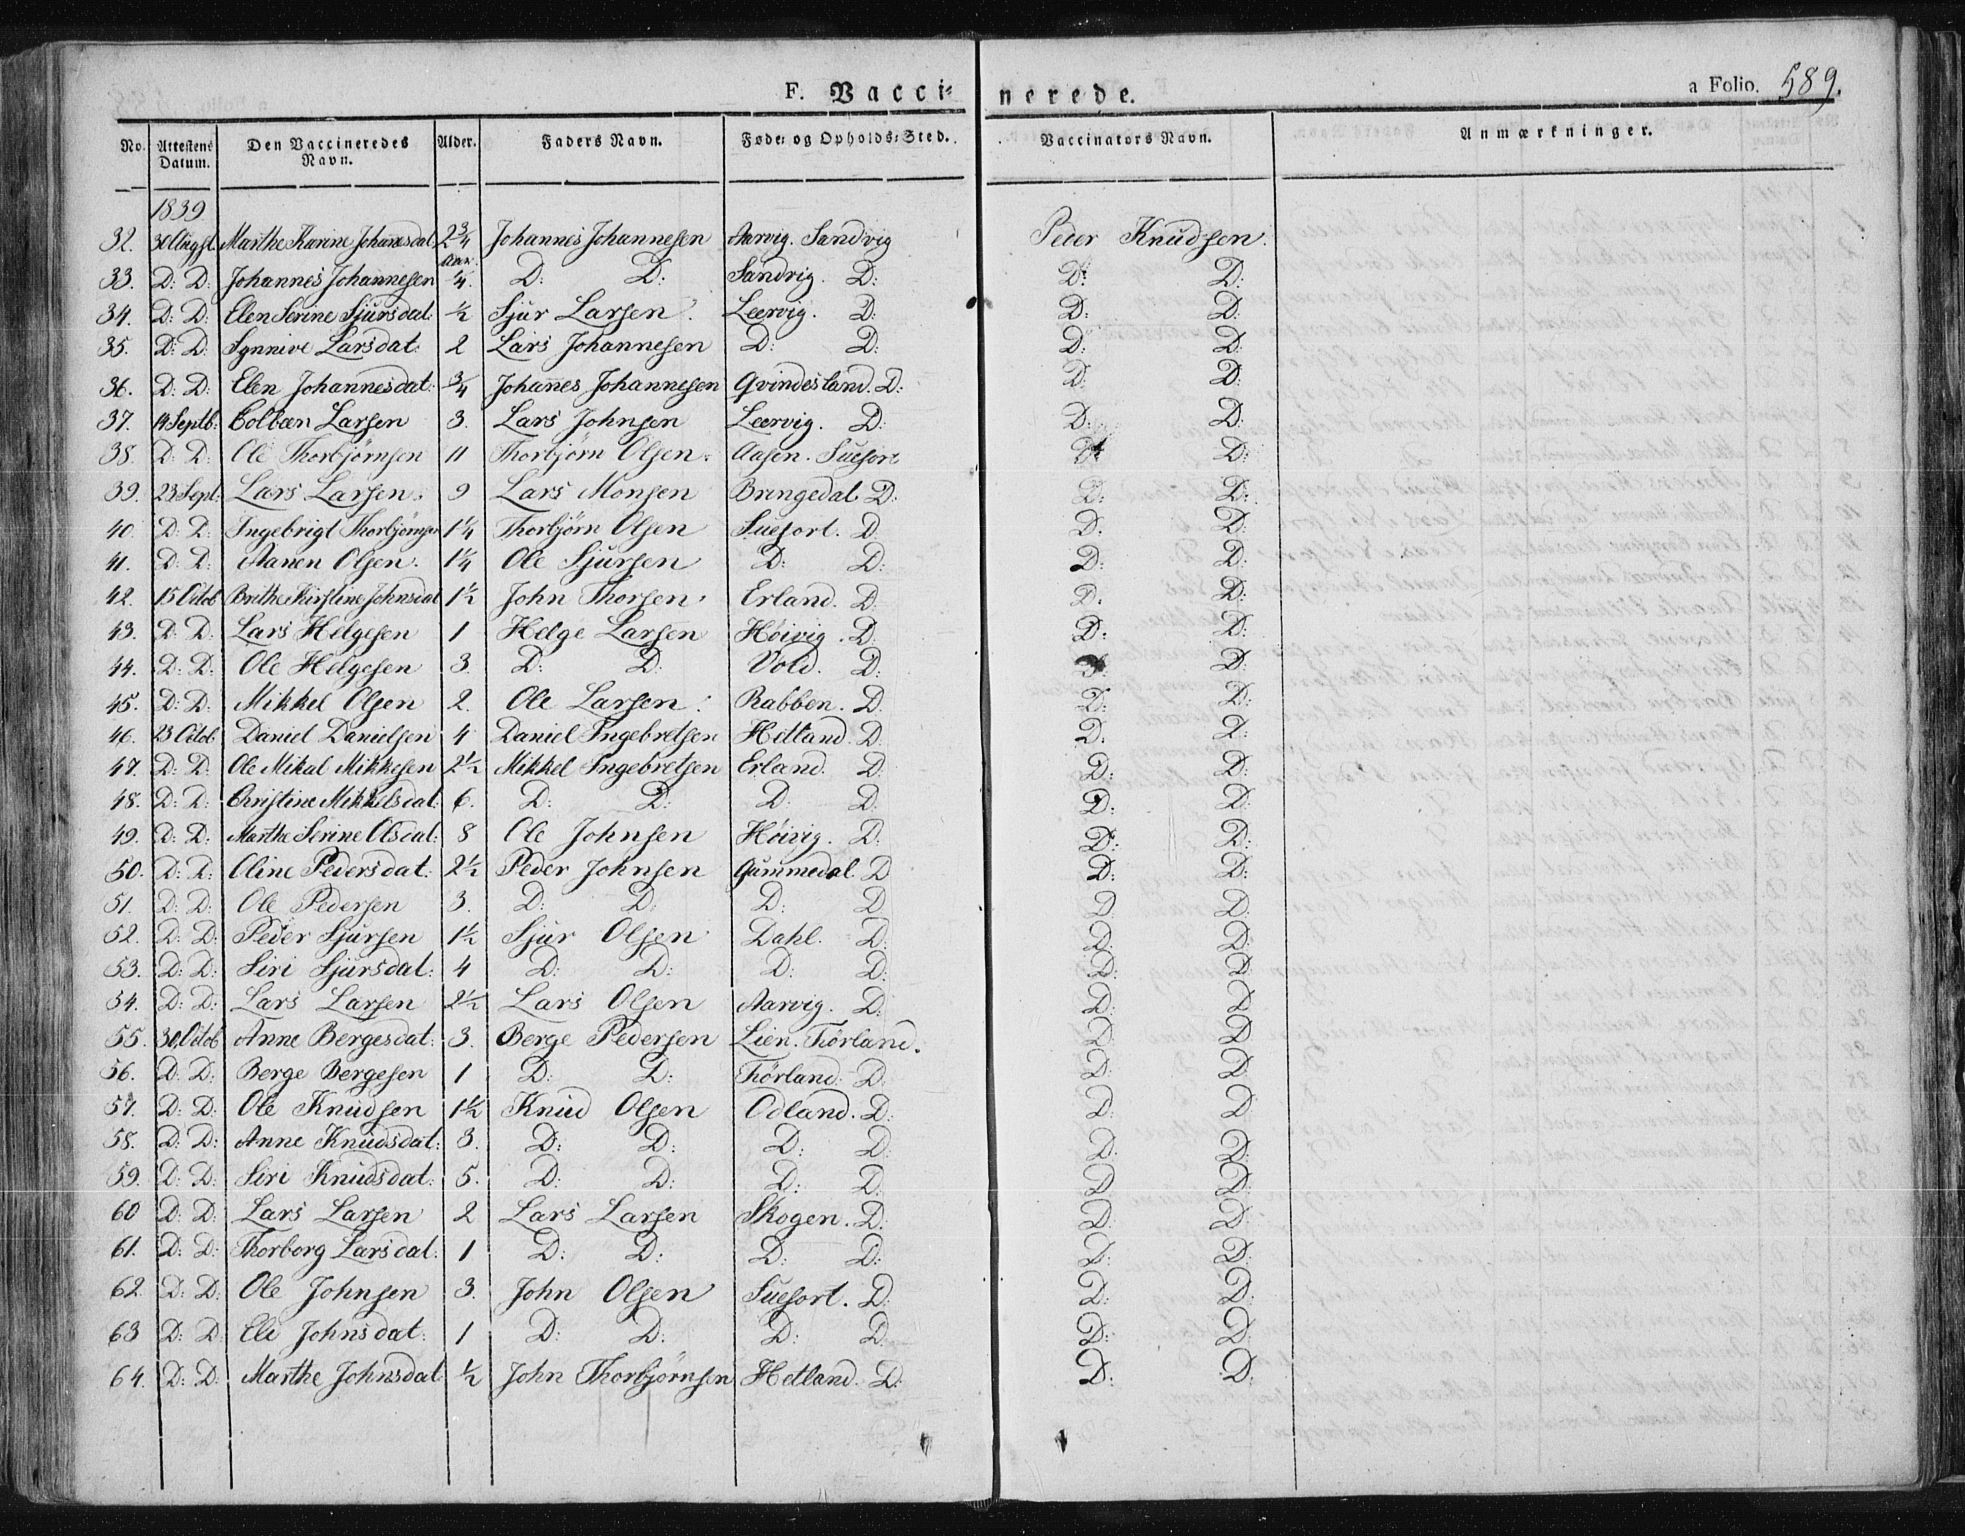 F. Vaccinerede. a Folio. 589.
No. Attestens Datum. Den Vaccineredes Navn. Alder. Faders Navn. Føde- og Opholds-Sted. Vaccinators Navn. Anmærkninger.
1839
32. 30 Augst. Marthe Karine Johansdat. 2 3/4 Aar. Johannes Johannesen Aarvig. Sandvig Peter Knudsen.
33. D: D: Johannes Johannesen 1/4. D: D: Sandvig. D: D: D:
34. D: D: Elen Serine Sjursdat: 1/2 Sjur Larsen. Leervig. D: D: D:
35. D: D: Synneve Larsdat: 2 Lars Johannesen D: D: D: D:
36. D: D: Elen Johannesdat: 3/4 Johanes Johannesen Qvindesland. D: D: D:
37. 14 Septb: Colben Larsen 3. Lars Johnsen Leervig. D: D: D:
38. D: D: Ole Thorbjørnsen 11 Thorbjørn Olsen. Aasen. Suefort D: D:
39. 23 Sept: Lars Larsen. 9 Lars Monsen Bringedal D: D: D:
40. D: D: Ingebrigt Thorbjørnsen 1 1/4 Thorbjørn Olsen Suefort. D D: D:
41. D: D: Aanen Olsen. 1 1/4 Ole Sjursen D: D: D: D:
42. 15 Octob Brithe Kirstine Johnsdat 1 1/2 John Thorsen. Erland. D D: D:
43. D: D: Lars Helgesen 1 Helge Larsen Høivig. D: D: D:
44. D: D: Ole Helgesen 3. D: D: Vold. D: D:
45. D: D: Mikkel Olsen 2. Ole Larsen. Rabben. D D: D:
46. 23 Octob. Daniel Danielsen 4 Daniel Ingebretsen Hetland. D D: D:
47. D: D: Ole Mikal Mikkesen 2 1/2 Mikkel Ingebretsen Erland. D: D: D:
48. D: D: Christine Mikkelsdat: 6. D: D: D: D: D: D:
49. D: D: Marthe Serine Olsdal: 8 Ole Johnsen Høivig. D: D: D:
50. D: D: Oline Pedersdat: 2 1/2 Peder Johnsen Gummedal D D: D:
51. D: D: Ole Pedersen 3. D: D: D: D D D:
52. D: D: Peder Sjursen 1 1/2 Sjur Olsen Dahl. D: D: D:
53. D: D: Siri Sjursdat: 4 D: D: D: D: D: D:
54. D: D: Lars Larsen 2 1/2 Lars Olsen Aarvig. D: D: D
55. 30 Octob Anne Bergesdat: 3. Berge Pedersen Lien. Førland. D: D
56. D: D: Berge Bergesen 1 D: D: Førland. D: D: D:
57. D: D: Ole Knudsen 1 1/2 Knud Olsen Odland. D: D: D
58. D: D: Anne Knudsdat: 3. D: D: D: D: D: D:
59. D: D: Siri Knudsdat: 5. D: D: D: D: D D:
60 D: D: Lars Larsen 2 Lars Larsen Skogen. D: D: D:
61. D: D: Thorborg Larsdat: 1 D: D: D: D: D: D:
62. D: D: Ole Johnsen 3. John Olsen Suefort. D: D: D:
63 D: D: Eli Johnsdat: 1 D: D: D: D: D: D:
64. D: D: Marthe Johnsdat 1/2 John Thorbjørnsen Hetland. D: D: D: